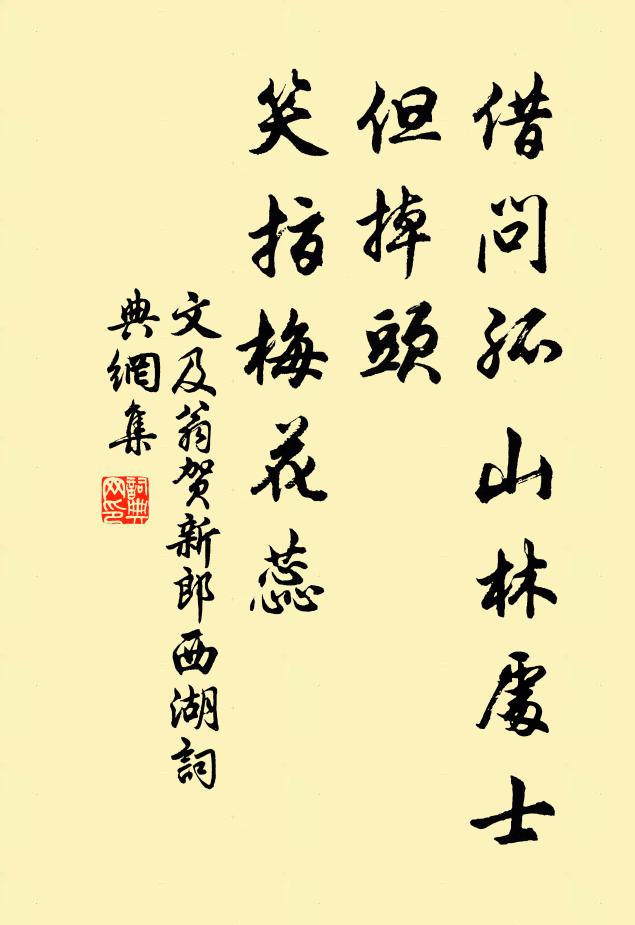 借问孤山林處士
但掉頭
笑指梅花蕊
文及翁贺新郎西湖詞
典網集
詞典
网印